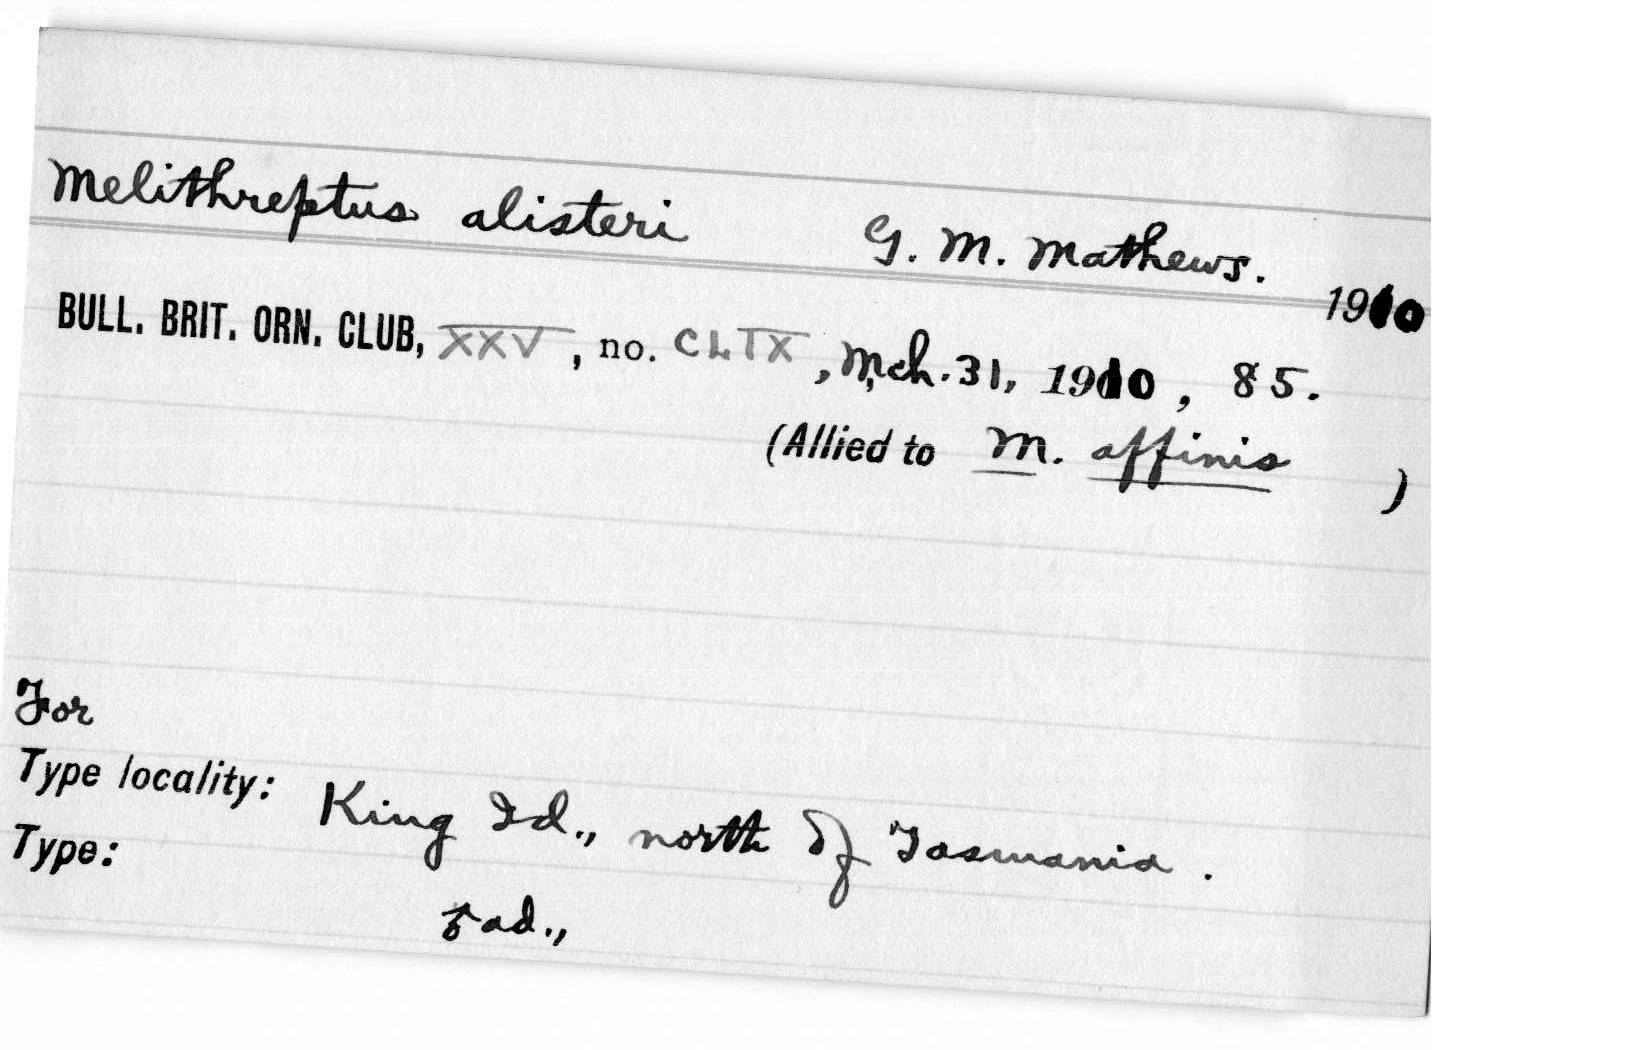 Melithreptus alisteri G. M. Mathews. 1910
BULL. BRIT. ORN. CLUB, XXV, no. CLIX, Mch. 31, 1910, 85.
(Allied to M. affinis )
For
Type locality: King Id., north of Tasmania.
Type: ad.,